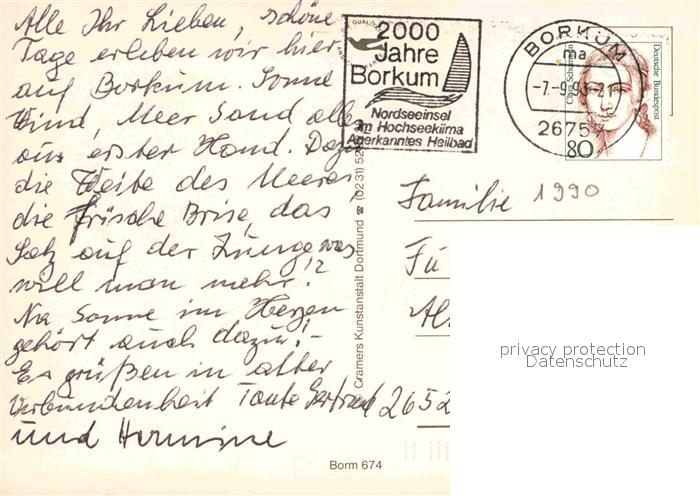 Alle Ihr Lieben, schöne
Tage erleben wir hier
auf Borkum. Sonne
Wind, Meer Sand alles
aus erster Hand. Dazu
die Weite des Meeres,
die frische Brise, das
Salz auf der Zunge was
will man mehr!?
Na Sonne im Herzen
gehört auch dazu!-
Es grüßen in alter
Verbundenheit Tante Gertrud
und Hermine
2000
Jahre
Borkum
Nordseeinsel
im Hochseeklima
Anerkanntes Heilbad
BORKUM
ma
-7.-9.93-21
26757
Deutsche Bundespost
80
Cramers Kunstanstalt Dortmund ☎ (0231)
Familie 1990
Fü
Al
2652
Borm 674
privacy protection
Datenschutz